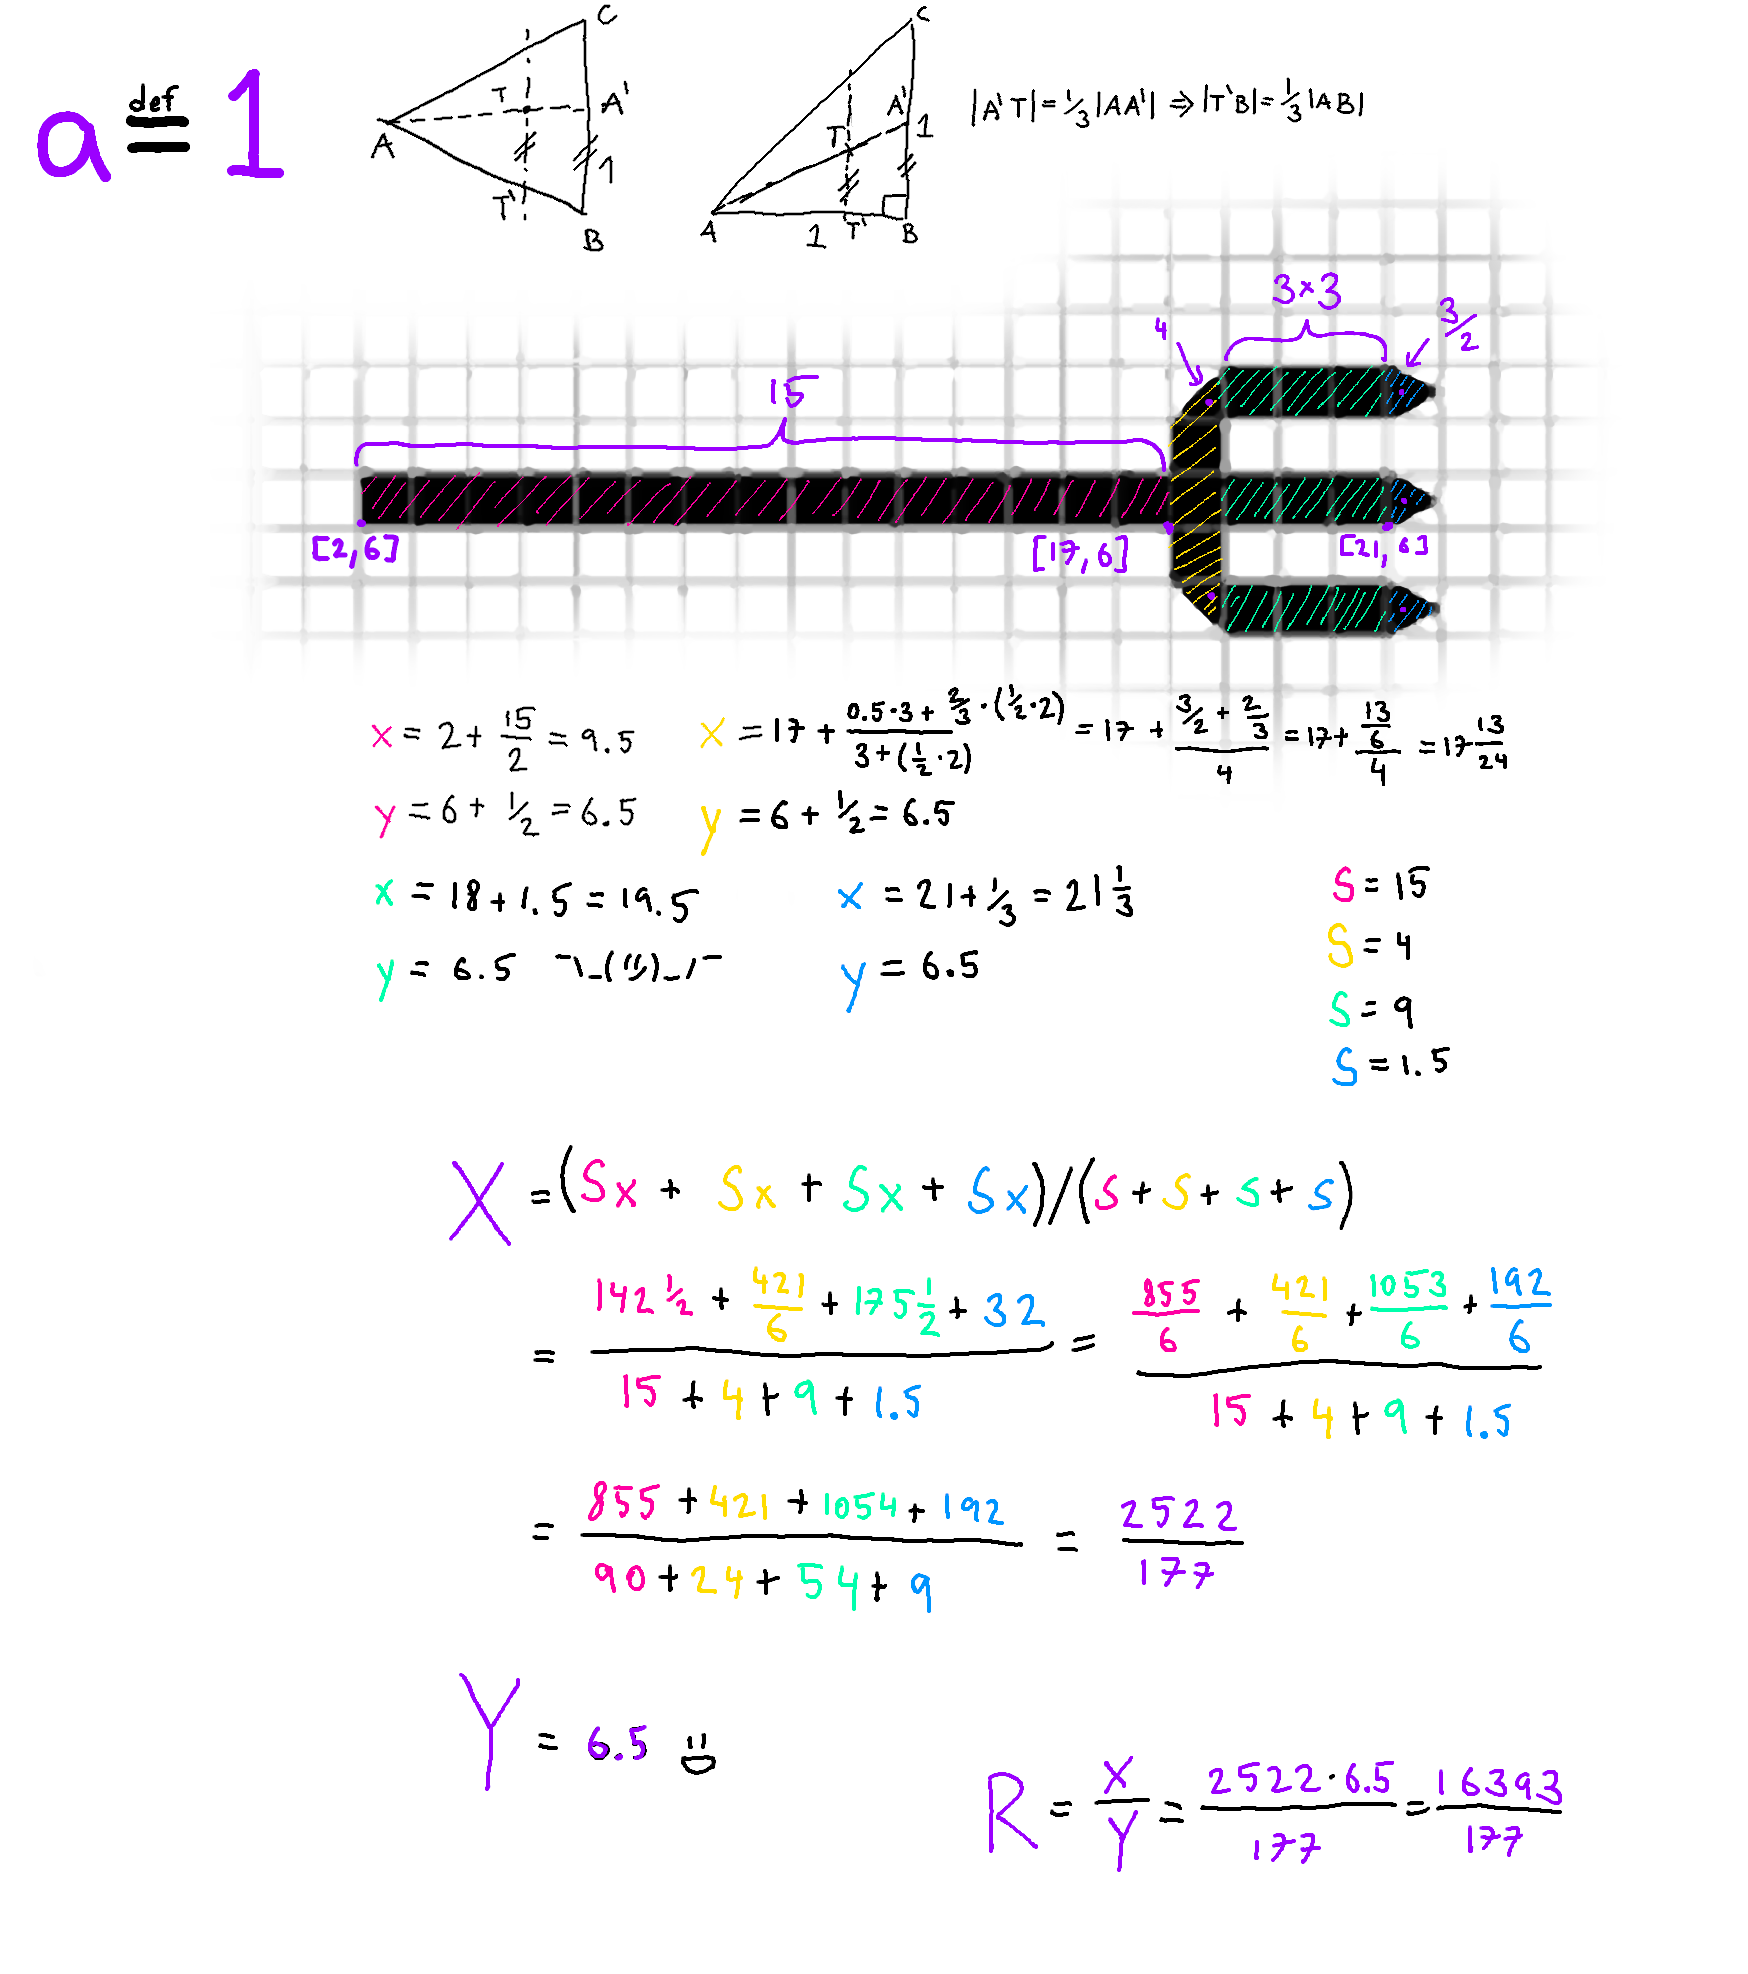 a def= 1
C
T A'
A
1
T'
B
C
A'
T 1
A 1 T' B
|A'T| = 1/3 |AA'| ⇒ |T'B| = 1/3 |AB|
3×3
4
3/2
15
[2,6]
[17,6]
[21,6]
x = 2 + 15/2 = 9.5
x = 17 + (0.5·3 + 2/3·(1/2·2))/(3 + (1/2·2)) = 17 + (3/2 + 2/3)/4 = 17 + (13/6)/4 = 17 13/24
y = 6 + 1/2 = 6.5
y = 6 + 1/2 = 6.5
x = 18 + 1.5 = 19.5
x = 21 + 1/3 = 21 1/3
y = 6.5 ¯\_(ツ)_/¯
y = 6.5
S = 15
S = 4
S = 9
S = 1.5
X = (Sx + Sx + Sx + Sx)/(S + S + S + S)
= (142 1/2 + 421/6 + 175 1/2 + 32)/(15 + 4 + 9 + 1.5) = (855/6 + 421/6 + 1053/6 + 192/6)/(15 + 4 + 9 + 1.5)
= (855 + 421 + 1054 + 192)/(90 + 24 + 54 + 9) = 2522/177
Y = 6.5
R = X/Y = 2522·6.5/177 = 16393/177